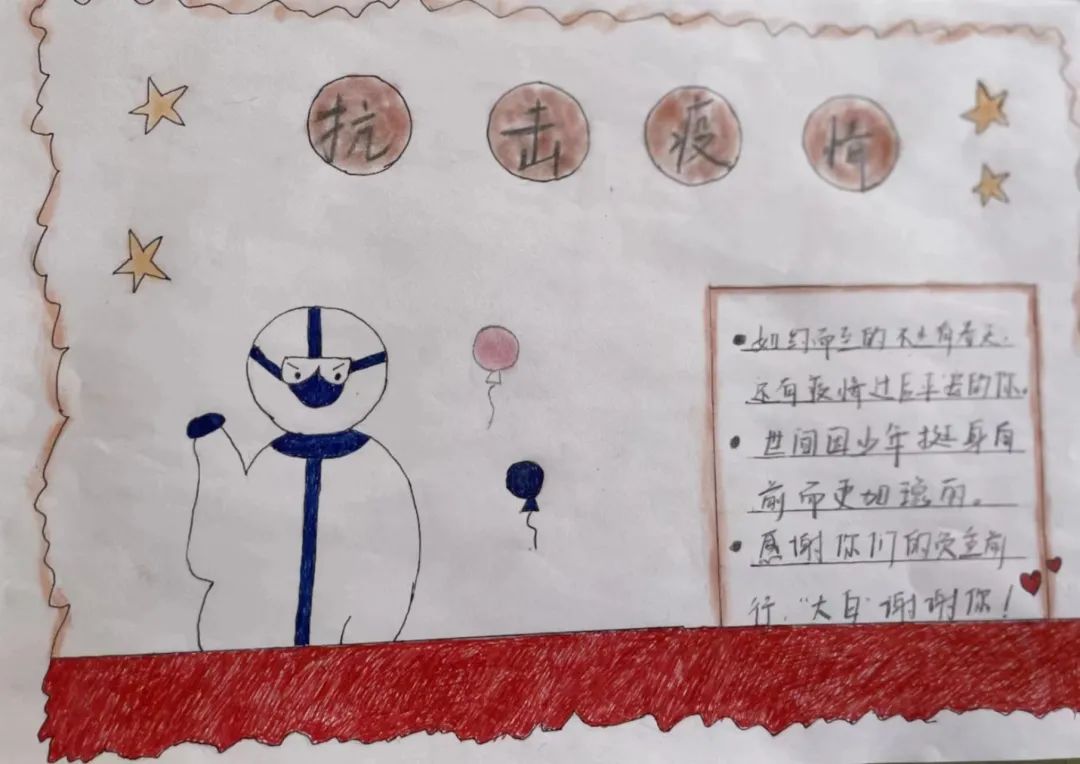 抗击疫情
•如约而至的不止有春天.
还有疫情过后平安的你.
•世间因少年挺身向
前而更加瑰丽。
•感谢你们的负重前
行."大白"谢谢你！